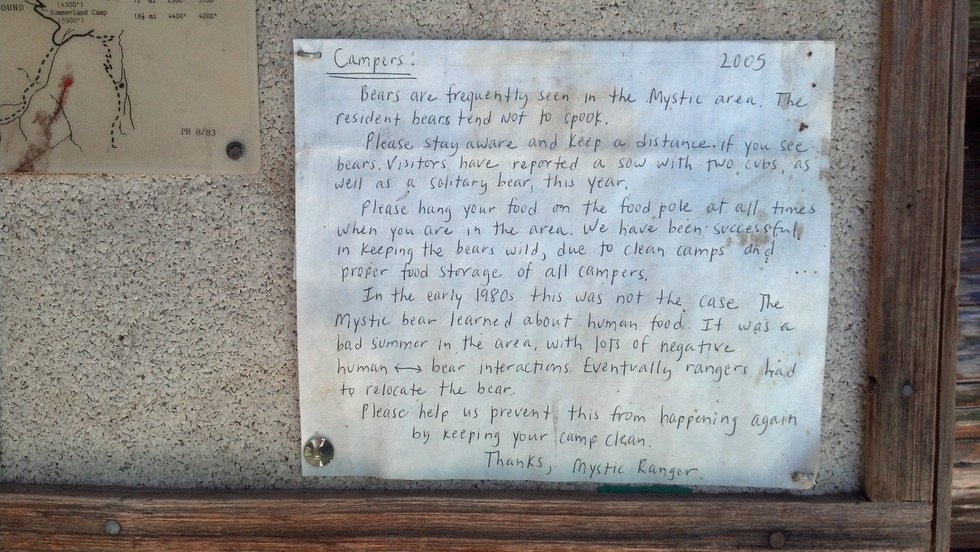 OUND
(4300')
Summerland Camp
(5900')
18½ mi 4400' 4200'
PB 8/83
Campers: 2005
Bears are frequently seen in the Mystic area. The
resident bears tend not to spook.
Please stay aware and keep a distance if you see
bears. Visitors have reported a sow with two cubs, as
well as a solitary bear, this year.
Please hang your food on the food pole at all times
when you are in the area. We have been successful
in keeping the bears wild, due to clean camps and
proper food storage of all campers.
In the early 1980s this was not the case. The
Mystic bear learned about human food. It was a
bad summer in the area, with lots of negative
human ↔ bear interactions. Eventually rangers had
to relocate the bear.
Please help us prevent this from happening again
by keeping your camp clean.
Thanks, Mystic Ranger